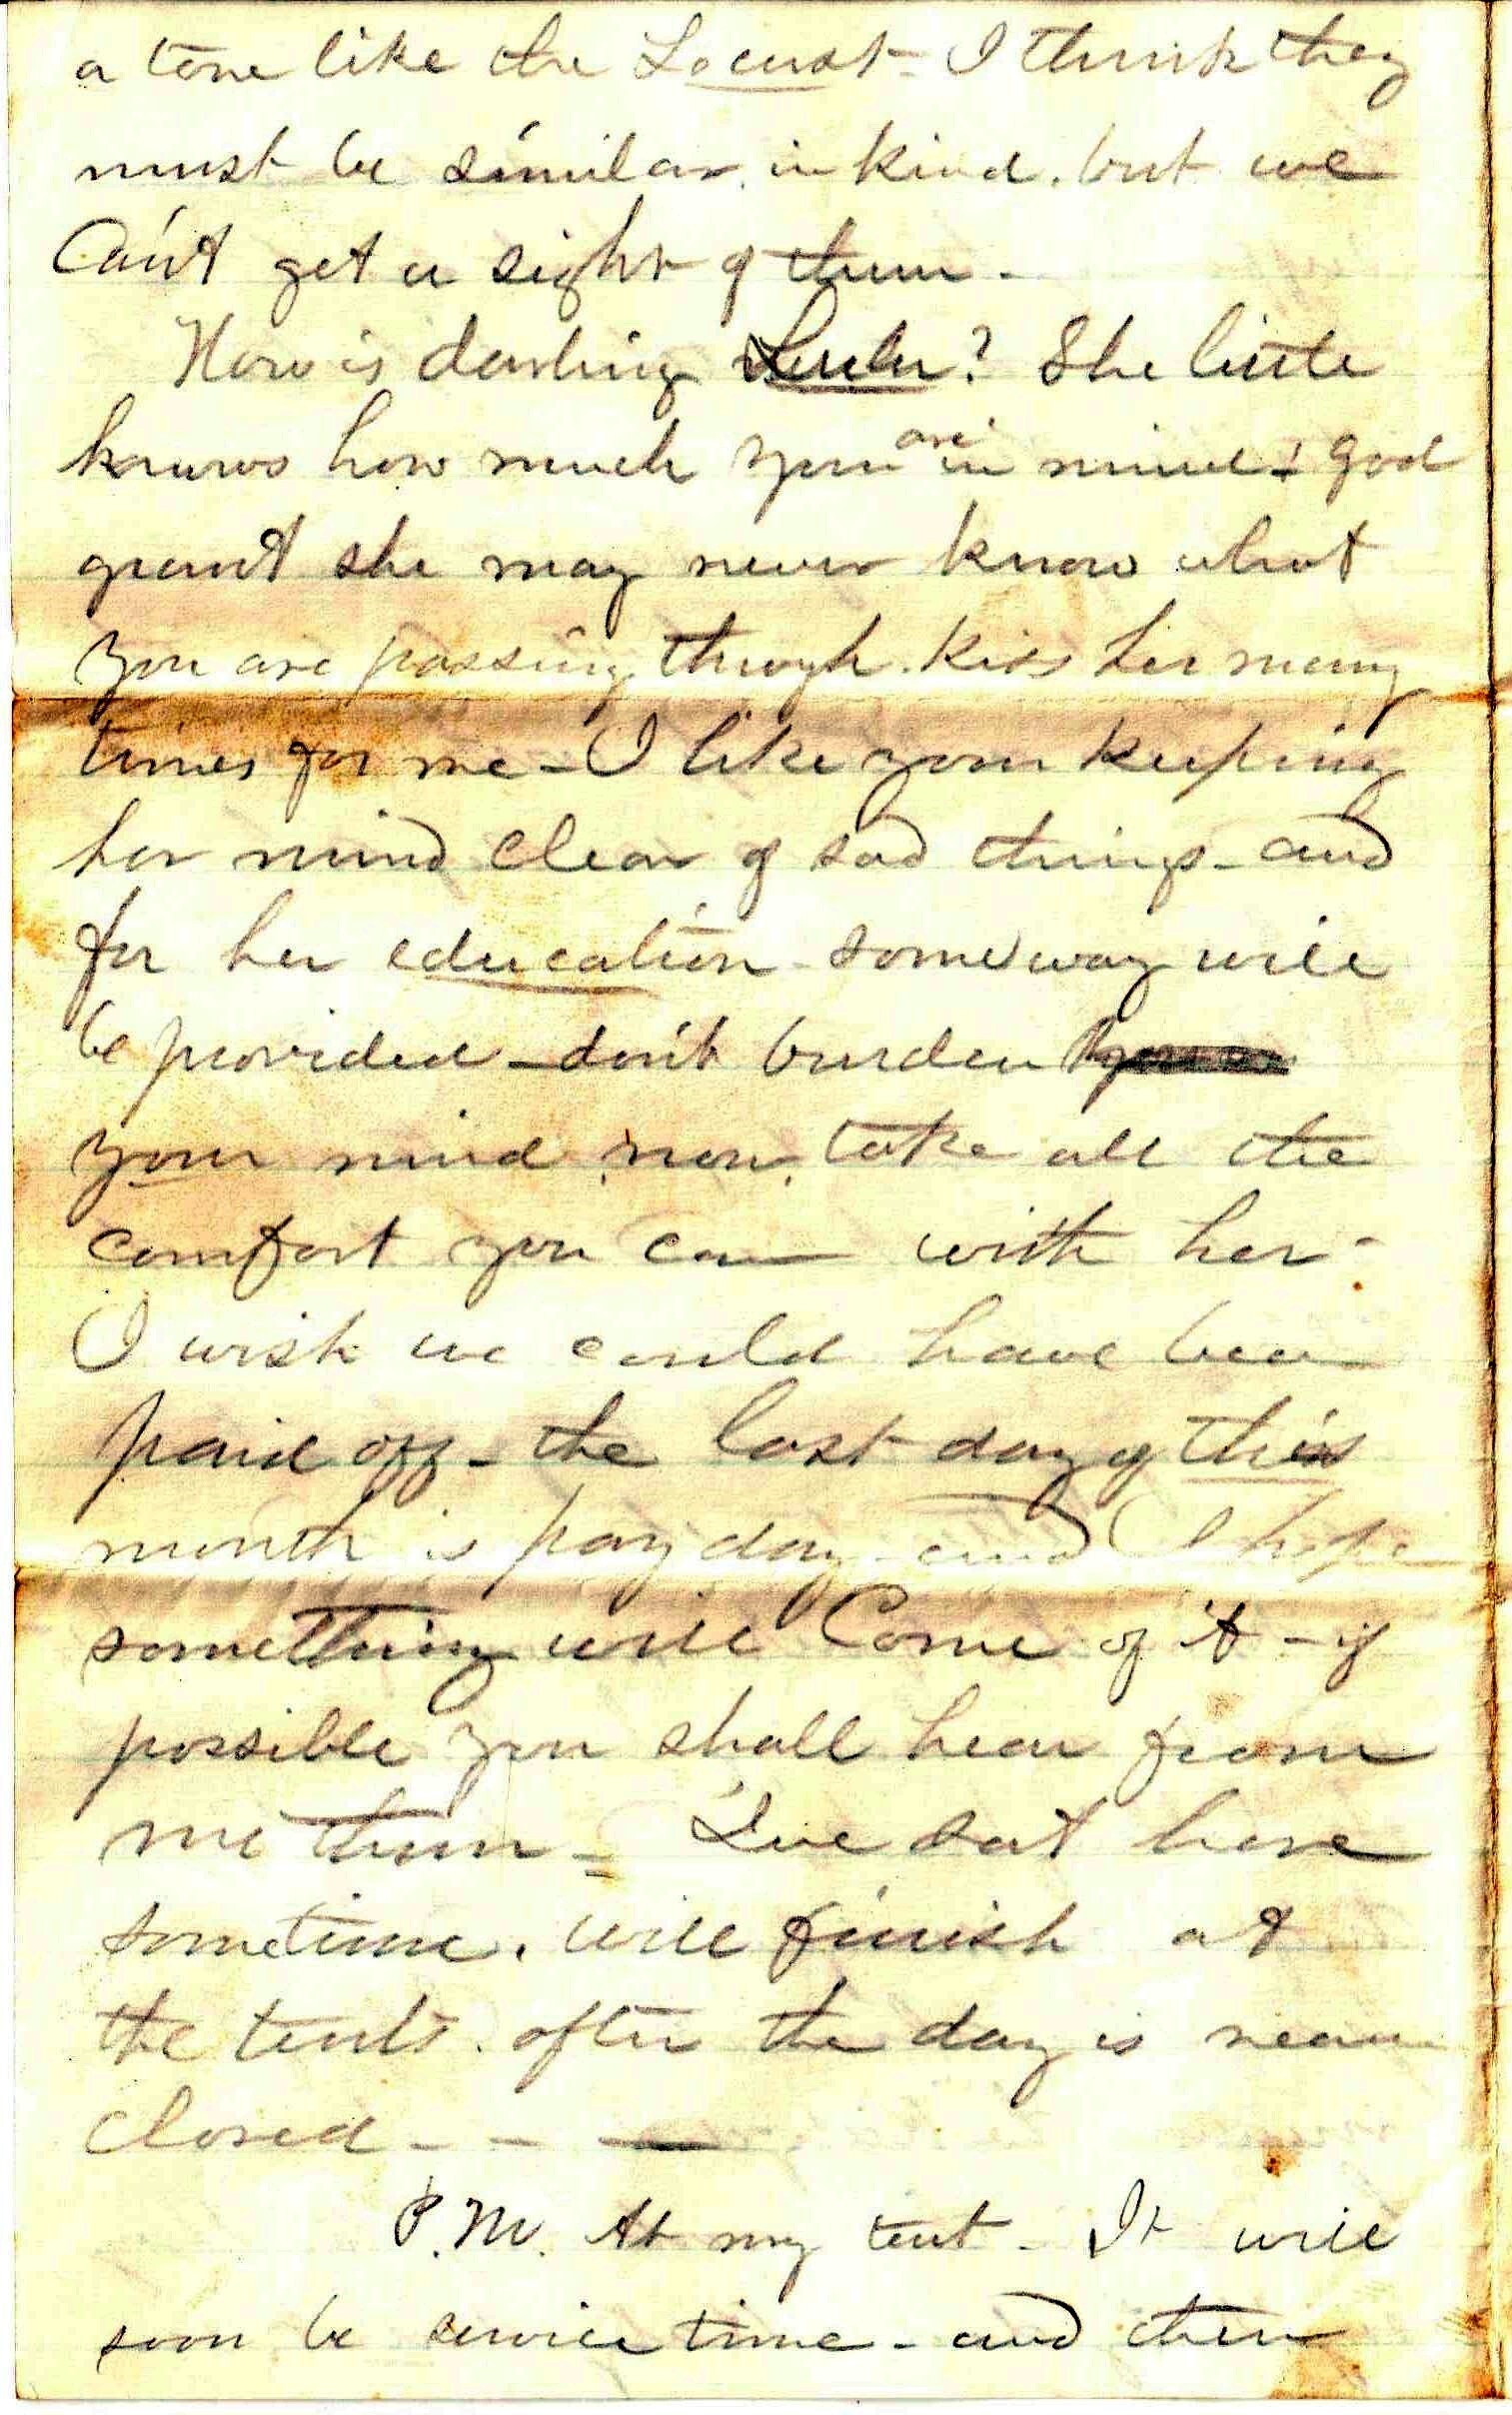 a tone like the Locust - I think they
must be similar in kind. but we
Can't get a sight of them -
How is darling Lulu? She little
knows how much you are in mind & God
grant she may never know what
you are passing through. Kiss her many
times for me - I like your keeping
her mind clear of sad things - and
for her education - some way will
be provided - don't burden
your mind now, take all the
comfort you can with her -
I wish we could have been
paid off - the last day of this
month is pay day - and I hope
something will Come of it - if
possible you shall hear from
me then - I've sat here
sometime. will finish at
the tents. after the day is near
closed - - -
P.M. At my tent - It will
soon be service time - and then